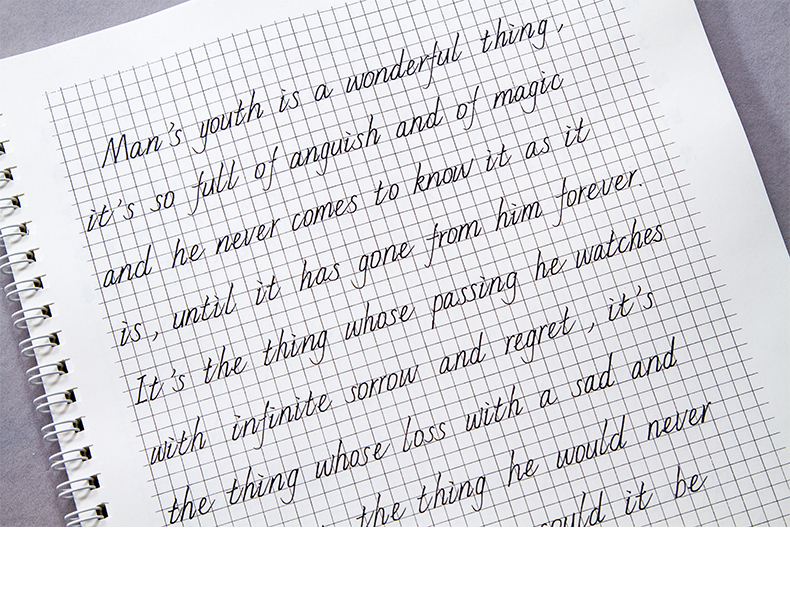 Man's youth is a wonderful thing,
it's so full of anguish and of magic
and he never comes to know it as it
is, until it has gone from him forever.
It's the thing whose passing he watches
with infinite sorrow and regret, it's
the thing whose loss with a sad and
the thing he would never
it be